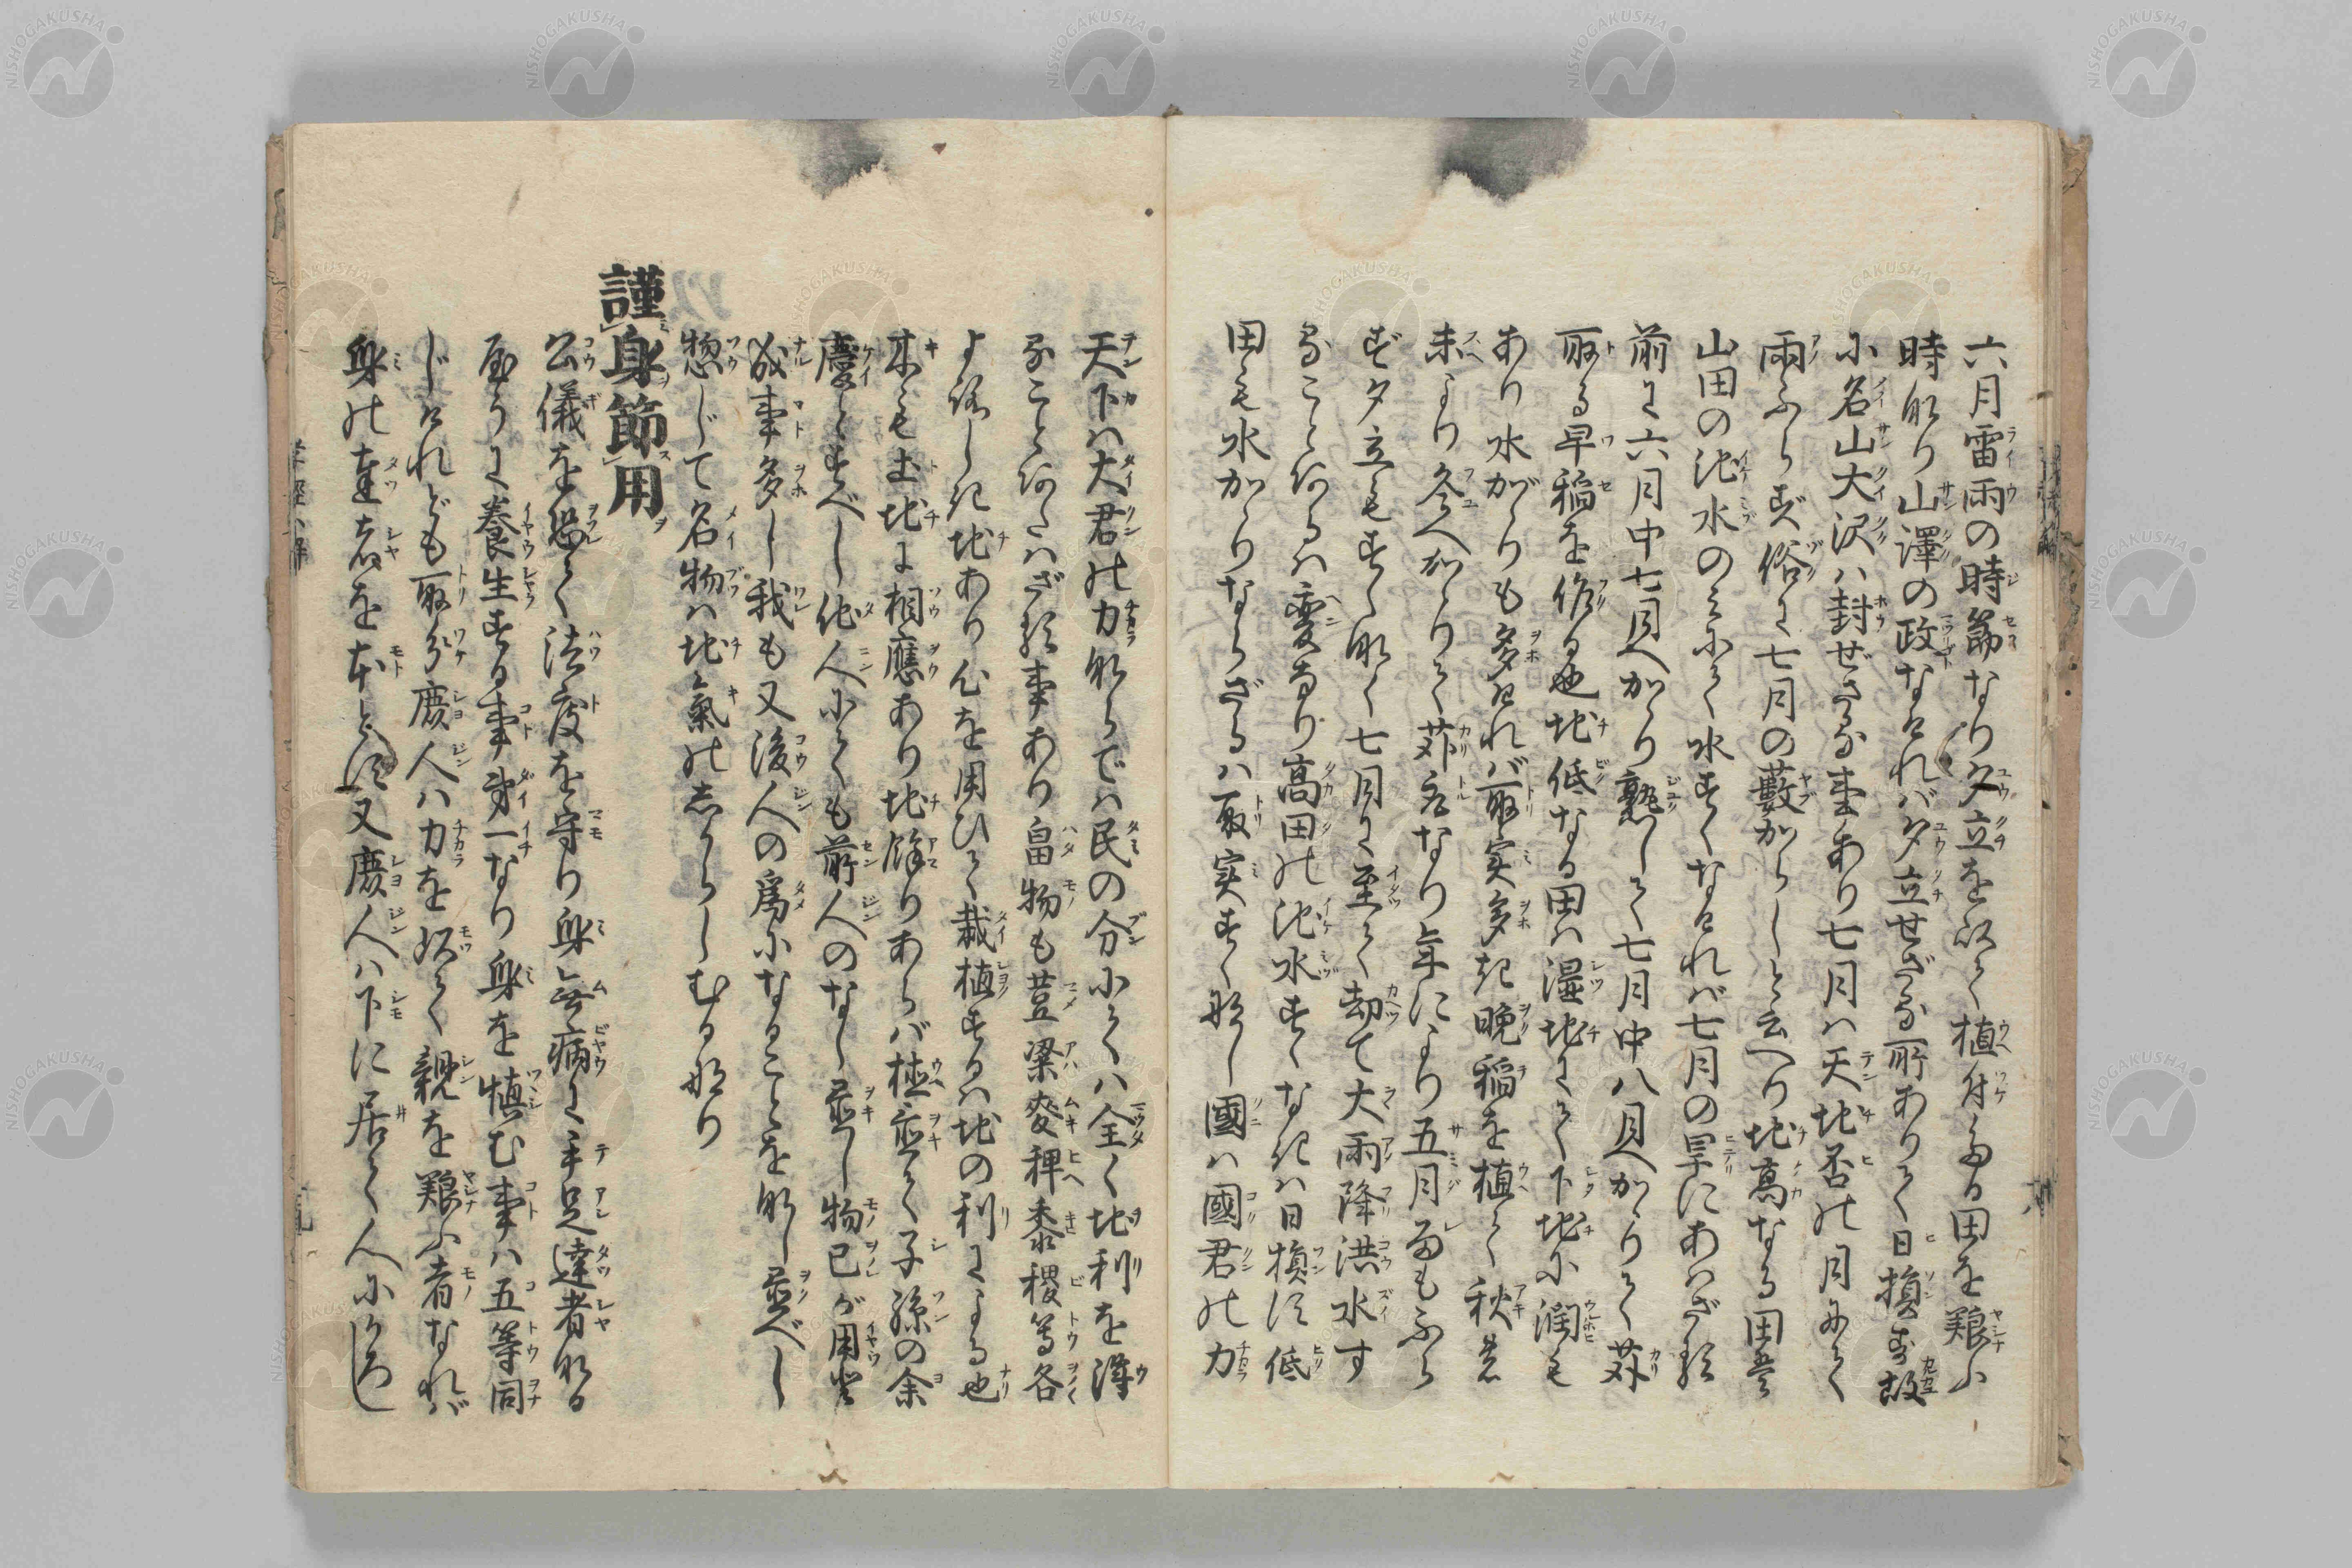 六月雷雨の時節なり夕立を以て植付たる田を艱ふ
時なり山澤の政なければ夕立せざる所ありて日損す故
に名山大沢ハ封ぜざる事あり七月ハ天地否の月にて
雨ふらず俗に七月の藪からしと云へり地高なる田並
山田の池水のミにて水すくなければ七月の旱にあハざる
前に六月中七月へかゝり熟して七月中八月へかゝりて苅
取る早稲を作る也地低なる田ハ湿地にて下地に潤も
あり水がゝりも多ければ取実多き晩稲を植て秋の
末より冬へかゝりて苅取なり年により五月雨もふら
ず夕立もすくなく七月に至て却て大雨降洪水す
ることあるハ変なり高田の池水すくなきハ日損し低
田も水かゝりならざるハ取実すくなし國ハ國君の力
天下ハ大君の力ならでハ民の分にてハ全く地利を得
ることあたハざる事あり畠物も荳粱麦稗黍稷等各
よろしき地あり心を用ひて栽植するハ地の利による也
木も土地に相應あり地餘りあらバ植置て子孫の余
慶とすべし他人にても前人のなし置し物己が用と
成事多し我も又後人の為になることをなし置べし
惣じて名物ハ地氣のしからしむる也
謹身節用
公儀を恐て法度を守り身無病に手足達者なる
やうに養生する事第一なり身を慎む事ハ五等同
じけれども取分庶人ハ力を以て親を養ふ者なれバ
身の達者を本とす又庶人ハ下に居て人に